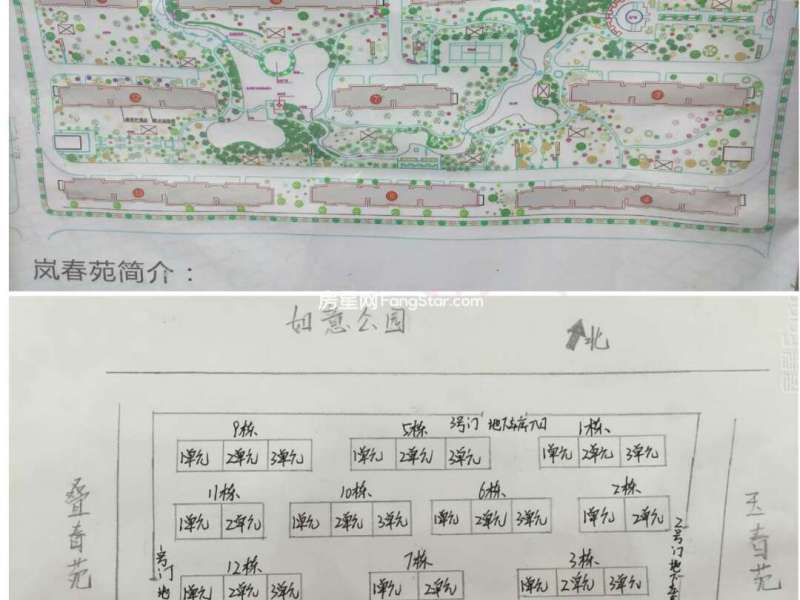 岚春苑简介：
房星网FangStar.com
如意公园
北
9栋 5栋 3号门 地下车库入口 1栋
1单元 2单元 3单元 1单元 2单元 3单元 1单元 2单元 3单元
11栋 10栋 6栋 2栋
1单元 2单元 1单元 2单元 3单元 1单元 2单元 3单元 1单元 2单元
叠春苑
玉春苑
2号门地下车
号门地
12栋 7栋 3栋
1单元 2单元 3单元 1单元 2单元 1单元 2单元 3单元